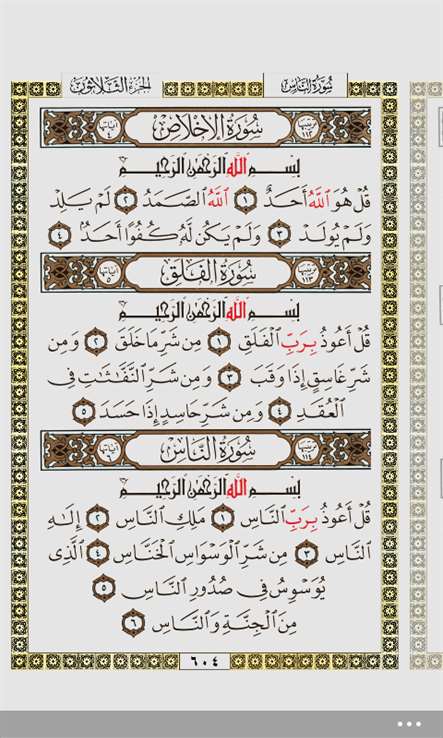 سُورَةُ النَّاسِ الجُزءُ الثَّلَاثُونَ
ترتيبها ١١٢ سُورَةُ الإِخْلَاصِ آياتها ٤
بِسْمِ اللَّهِ الرَّحْمَٰنِ الرَّحِيمِ
قُلْ هُوَ اللَّهُ أَحَدٌ ١ اللَّهُ الصَّمَدُ ٢ لَمْ يَلِدْ
وَلَمْ يُولَدْ ٣ وَلَمْ يَكُن لَّهُ كُفُوًا أَحَدٌ ٤
ترتيبها ١١٣ سُورَةُ الْفَلَقِ آياتها ٥
بِسْمِ اللَّهِ الرَّحْمَٰنِ الرَّحِيمِ
قُلْ أَعُوذُ بِرَبِّ الْفَلَقِ ١ مِن شَرِّ مَا خَلَقَ ٢ وَمِن
شَرِّ غَاسِقٍ إِذَا وَقَبَ ٣ وَمِن شَرِّ النَّفَّٰثَٰتِ فِي
الْعُقَدِ ٤ وَمِن شَرِّ حَاسِدٍ إِذَا حَسَدَ ٥
ترتيبها ١١٤ سُورَةُ النَّاسِ آياتها ٦
بِسْمِ اللَّهِ الرَّحْمَٰنِ الرَّحِيمِ
قُلْ أَعُوذُ بِرَبِّ النَّاسِ ١ مَلِكِ النَّاسِ ٢ إِلَٰهِ
النَّاسِ ٣ مِن شَرِّ الْوَسْوَاسِ الْخَنَّاسِ ٤ الَّذِي
يُوَسْوِسُ فِي صُدُورِ النَّاسِ ٥
مِنَ الْجِنَّةِ وَالنَّاسِ ٦
٦٠٤